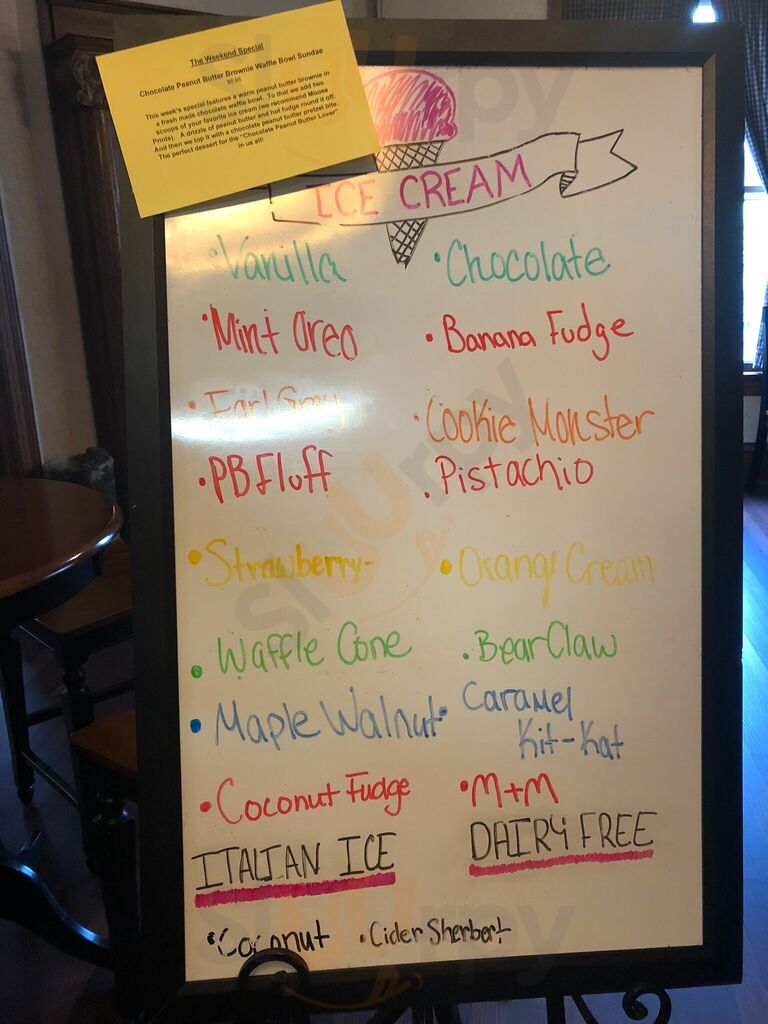 The Weekend Special
Chocolate Peanut Butter Brownie Waffle Bowl Sundae
This week's special features a warm peanut butter brownie in
a fresh made chocolate waffle bowl. To that we add two
scoops of your favorite ice cream (we recommend Moose
Prints). A drizzle of peanut butter and hot fudge round it off.
And then we top it with a chocolate peanut butter pretzel bite.
The perfect dessert for the "Chocolate Peanut Butter Lover"
in us all!
ICE CREAM
•Vanilla •Chocolate
•Mint Oreo •Banana Fudge
•Earl Grey •Cookie Monster
•PB Fluff •Pistachio
•Strawberry- •Orange Cream
•Waffle Cone •Bear Claw
•Maple Walnut •Caramel
Kit-Kat
•Coconut Fudge •M+M
ITALIAN ICE DAIRY FREE
•Coconut •Cider Sherbert
slurpy